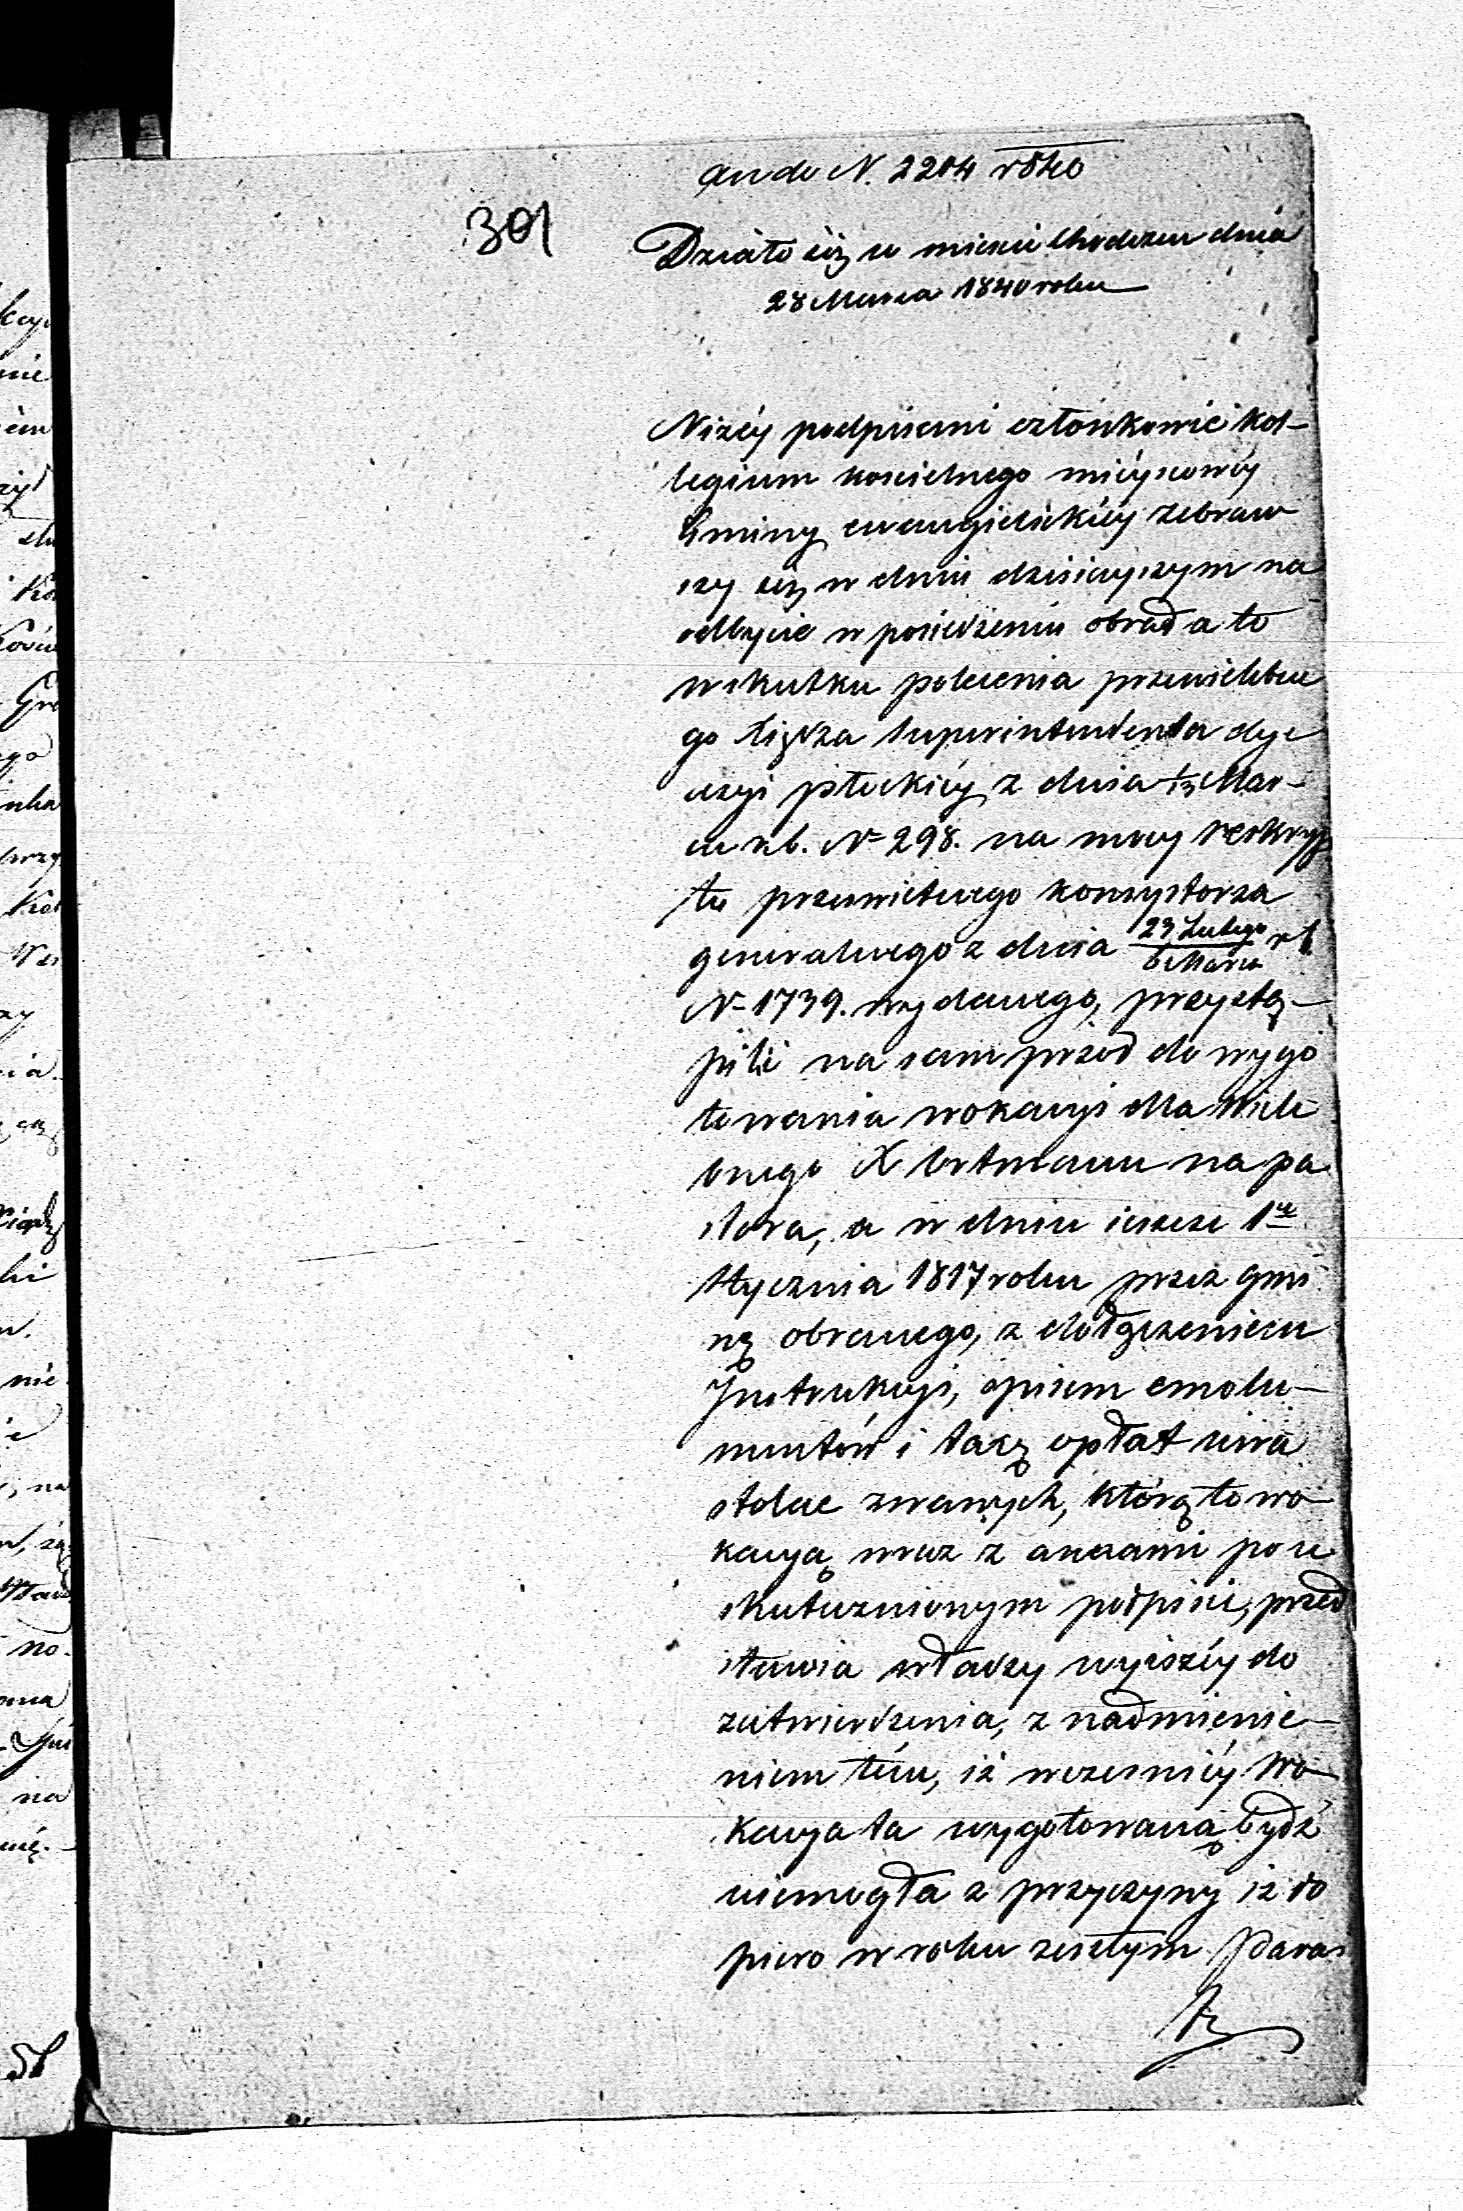 ad N. 2204 1840
301
Działo się w mieście Chodczu dnia
28 Marca 1840 roku
Niżéy podpisani członkowie kol-
legium kościelnego mieyscowéy
Gminy ewangielickiéy zebraw
szy się w dniu dzisieyszym na
odbycie w posiedzeniu obrad a to
w skutku polecenia przewielebne
go Xiędza Superintendenta dye
cezyi płockiéy z dnia 1/13 Mar-
ca r.b. N 298. na mocy reskryp
tu prześwietnego konsystorza
generalnego z dnia 23 Lutego r b
6 Marca
N 1739. wydanego, przystą-
pili na sam przód do wygo
towania wokacyi dla Wiele
bnego X Ortmann na pa
stora, a w dniu ieszcze 1go
Stycznia 1817 roku przez gmi
nę obranego, z dołączeniem
Instrukcyi, opisem emolu-
mentów i taxą opłat iura
stolae zwanych, którą to wo
kacyą wraz z anexami po u
skutecznionym podpisie, przed
stawia władzy wyższéy do
zatwierdzenia, z nadmienie-
niem tém, iż wcześniéy Wo
kacya ta wygotowaną bydź
niemogła z przyczyny iż do
piero w roku zeszłym Para